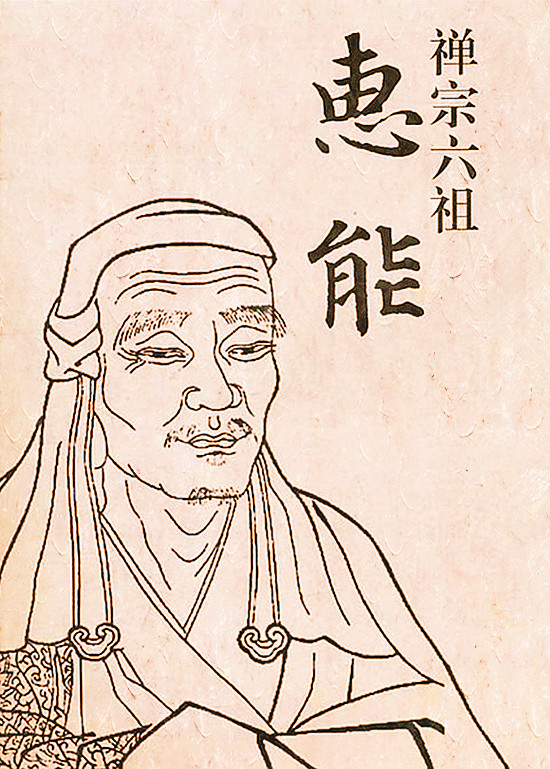 禅宗六祖
惠能